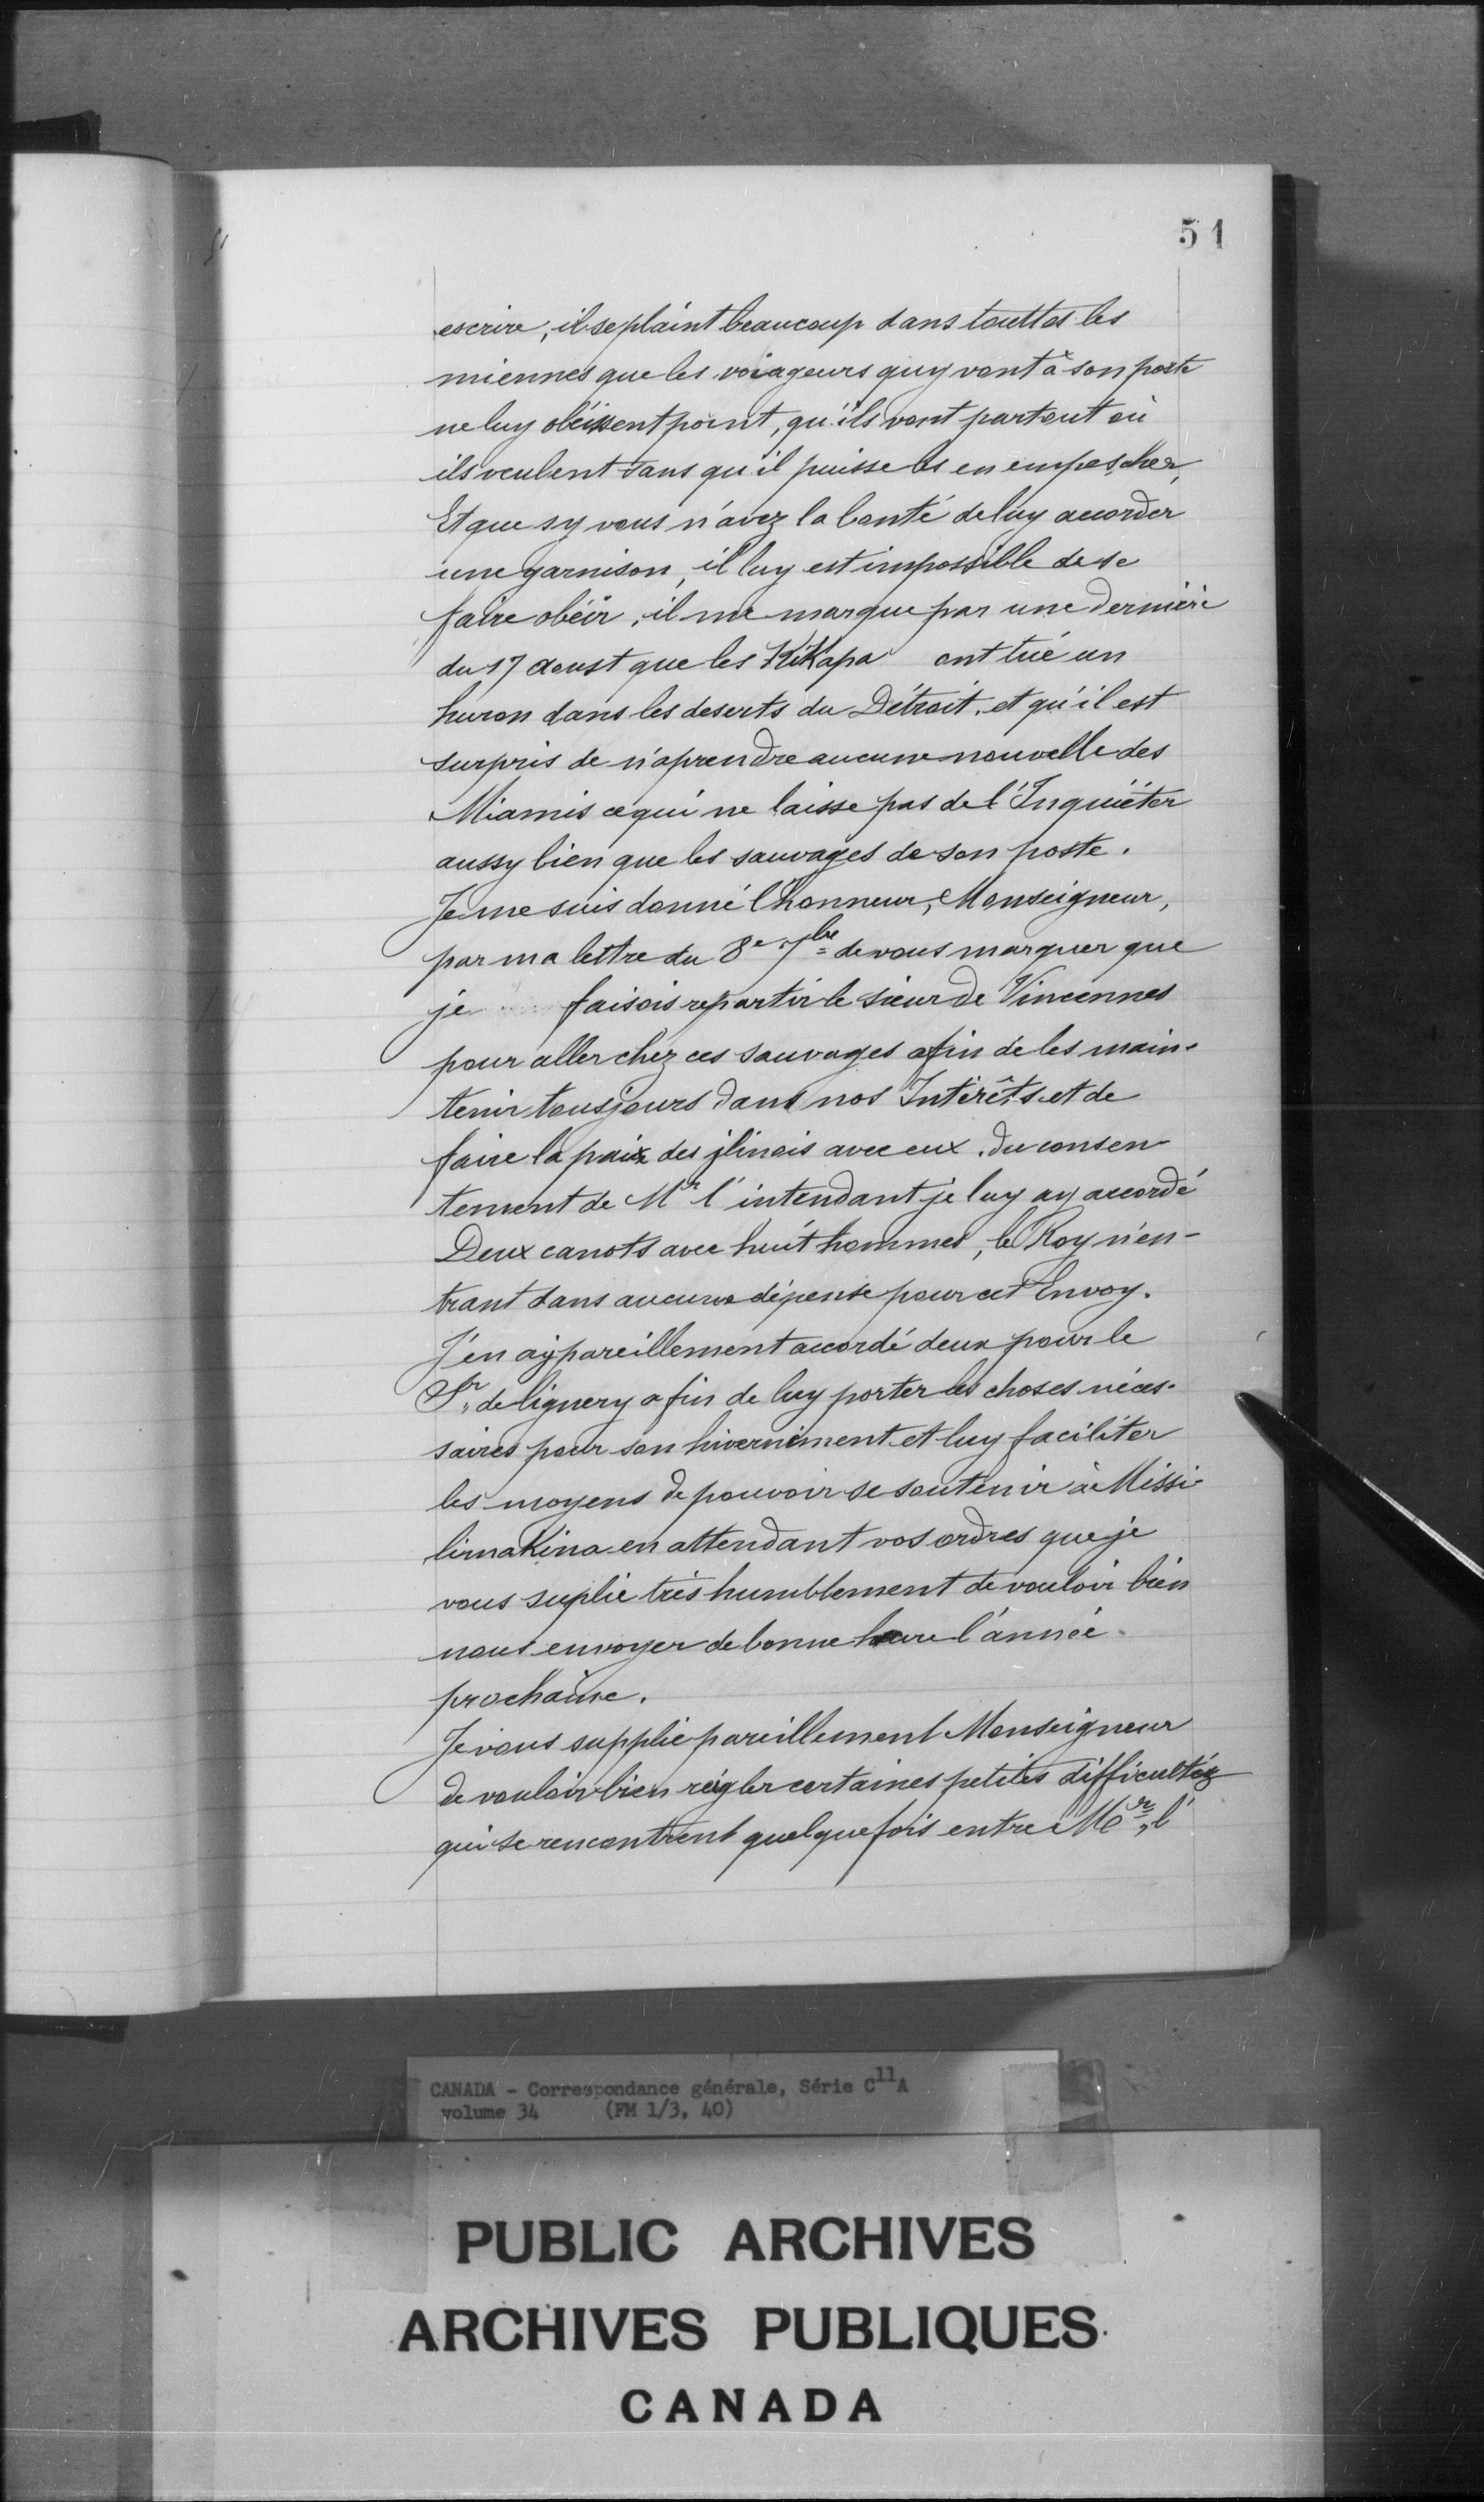 51
escrire, il se plaint beaucoup dans touttes les
miennes que les voiageurs quy vont à son poste
ne luy obéissent point, qu'ils vont partout où
ils veulent sans qu'il puisse les en empescher,
Et que sy vous n'avez la bonté de luy accorder
une garnison, il luy est impossible de se
faire obéir, il me marque par une dernière
du 17 aoust que les KiKapa ont tué un
huron dans les deserts du Détroit, et qu'il est
surpris de n'aprendre aucune nouvelle des
Miamis ce qui ne laisse pas de l'Inquiéter
aussy bien que les sauvages de son poste.
Je me suis donné l'honneur, Monseigneur,
par ma lettre du 8e 7bre de vous marquer que
je faisois repartir le sieur de Vincennes
pour aller chez ces sauvages afin de les main-
tenir tousjours dans nos Intérêts et de
faire la paix des jlinois avec eux. du consen-
tement de Mr l'intendant je luy ay accordé
Deux canots avec huit hommes, le Roy n'en-
trant dans aucune dépense pour cet Envoy.
J'en ay pareillement accordé deux pour le
Sr de lignery afin de luy porter les choses néces-
saires pour son hivernement et luy faciliter
les moyens de pouvoir se soutenir à Missi-
limaKina en attendant vos ordres que je
vous suplie très humblement de vouloir bien
nous envoyer de bonne heure l'année
prochaine.
Je vous supplie pareillement Monseigneur
de vouloir bien régler certaines petites difficultéz
qui se rencontrent quelquefois entre Mr l'
CANADA - Correspondance générale, Série C11A
volume 34 (FM 1/3, 40)
PUBLIC ARCHIVES
ARCHIVES PUBLIQUES
CANADA